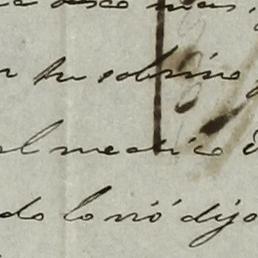 desea mas,
tu sobrino
el medico
do lo vió dijo